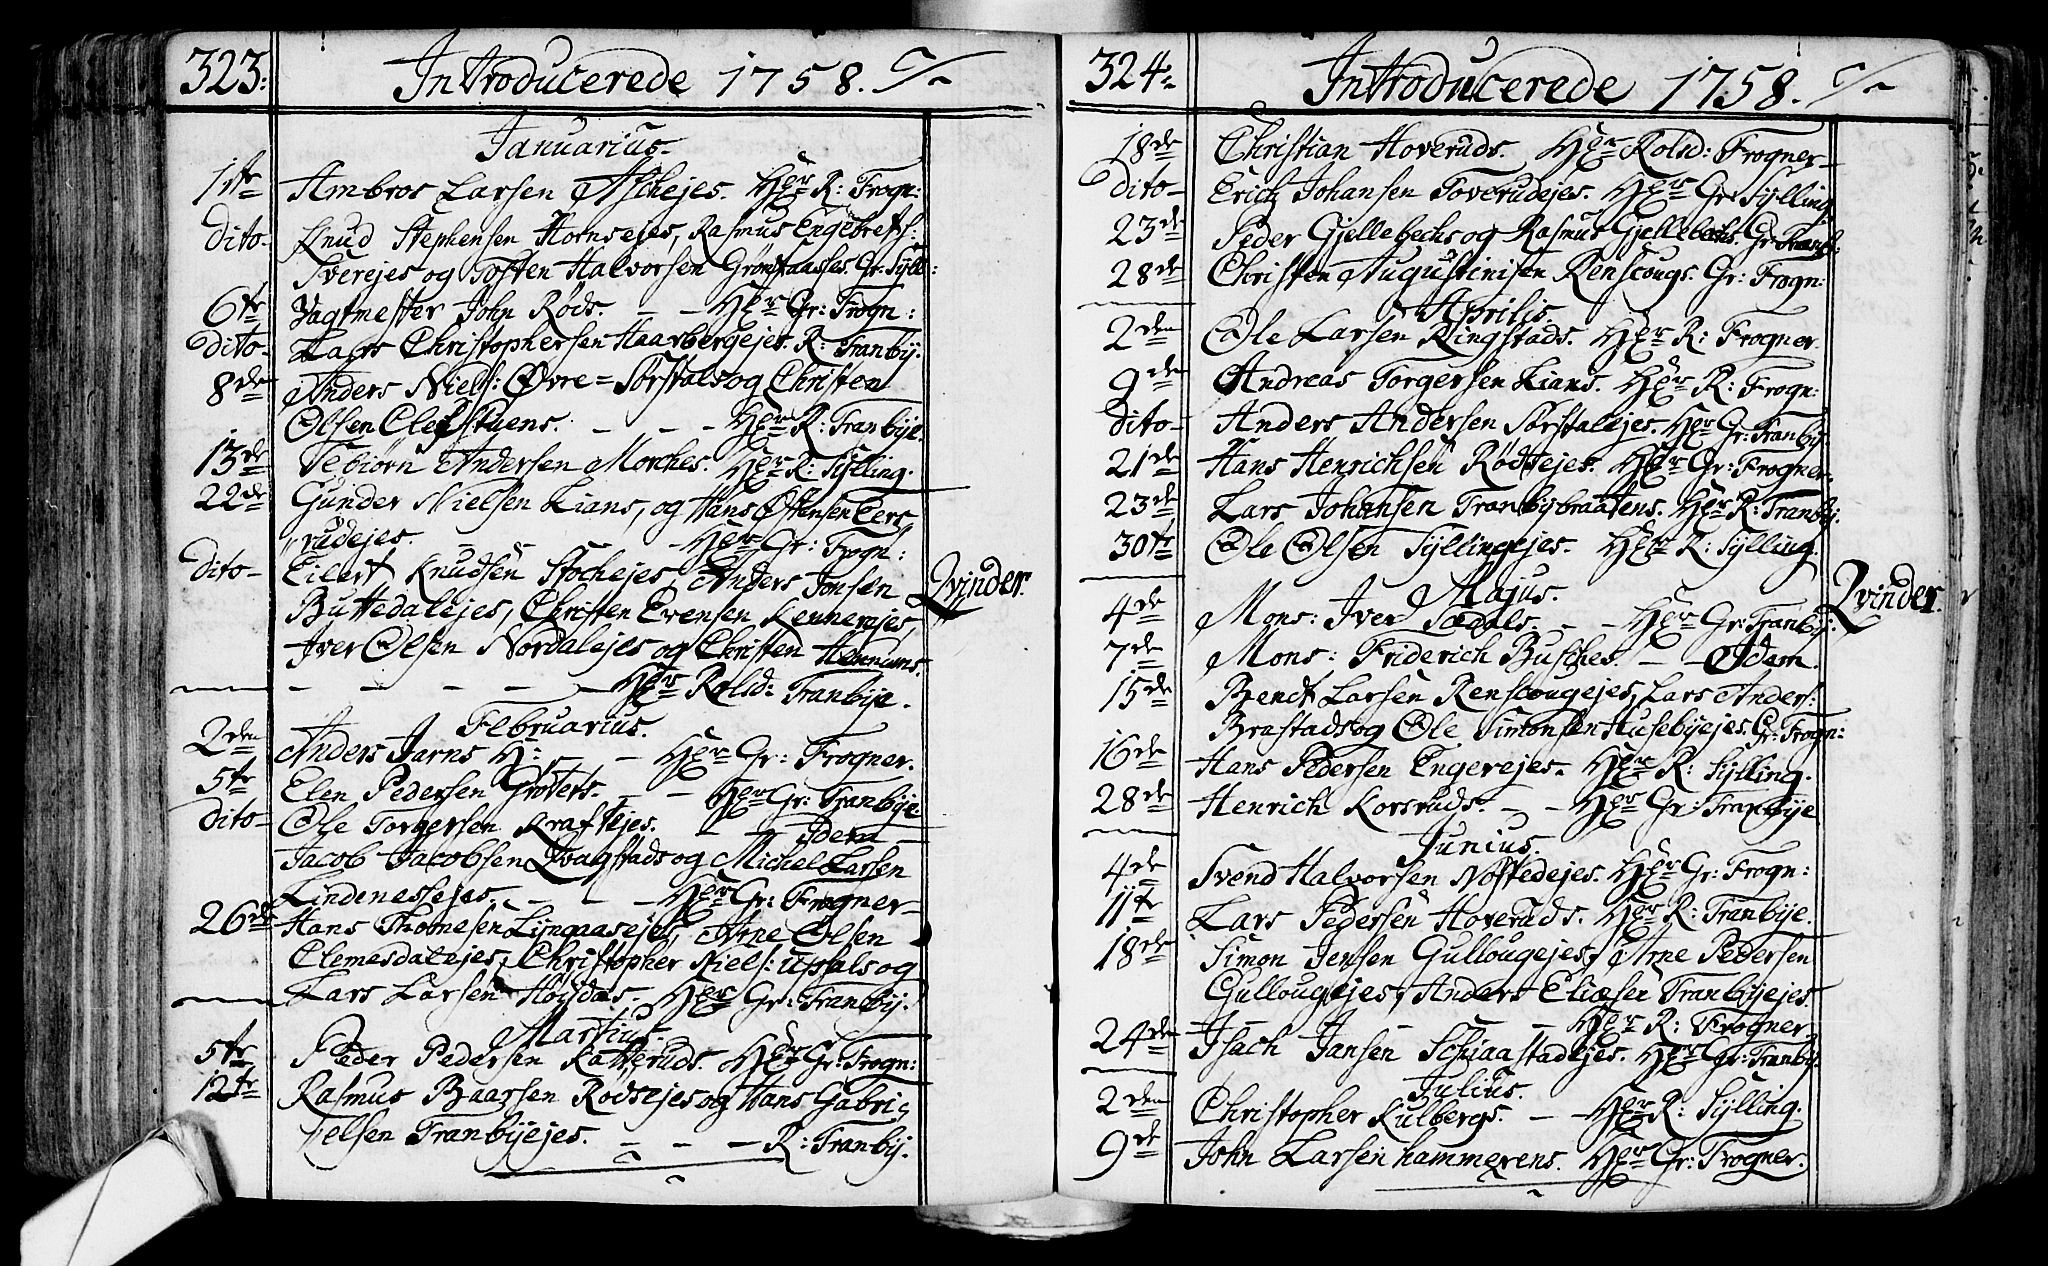 323:
Introducerede 1758.
Januarius.
1ste Ambros Larsen Aschejes. Her R: Frogn:
Dito- Knud Stephensen Hornsejes, Rasmus Engebrets:
Sverejes og Tosten Halvorsen Grønsaasses. Gr: Syll:
6te Vagtmester John Røds. — — Her Gr: Frogn:
Dito- Lars Christophersen Haarbergejes. R: Tranbij.
8de Anders Niels: Øvre=Sørstals og Christen
Olsen Clefstuens. — — — Her R: Tranbije.
13de Tebiorn Andersen Morches. Her R: Sylling.
22de Gunder Nielsen Lians, og Hans Østensen Eers
rudejes. — — Her Gr: Frogn:
Dito- Eilert Knudsen Stochejes, Anders Jonsen
Buttedalejes, Christen Evensen Rennemjes,
Iver Olsen Nordalejes og Christen Hennums.
— — — — — Her Rolsd: Tranbije.
Qvinder.
Februarius.
2den Anders Jarns H: — Her Gr: Frogner.
5te Elen Pedersen Groters. — — Her Gr: Tranbije
Dito- Ole Torgersen Kraftejes. — Idem
Jacob Jacobsen Qvagstads og Michel Larsen
Lindenessejes. — — Her Gr: Frogner-
26de Hans Thomesen Lijngaasejes, Arne Olsen
Clemesdalejes, Christopher Niels: Upsals og
Lars Larsen Høysdas. Her Gr: Tranbij.
Martius.
5te Peder Pedersen Katteruds. Her Gr: Frogn:
12te Rasmus Baarsen Rødsejes og Hans Gabri,
elsen Tranbijejes. — — — R: Tranbij.
324:
Introducerede 1758.
18de Christian Hoveruds. Her Rolsd: Frogner-
Dito- Erich Johansen Toverudejes. Her Gr: Sylling.
23de Peder Gjellebechs og Rasmus Gjellebechs. Gr: Tranb:
28de Christen Augustinisen Renscougs. Gr: Frogn:
Aprilis.
2den Ole Larsen Ringstads. Her R: Frogner.
9de Andreas Torgersen Lians. Her R: Frogn:
Dito- Anders Andersen Sørstalejes. Her Gr: Tranbij.
21de Hans Henrichsen Rødsejes. Her Gr: Frogner.
23de Lars Johansen Tranbijbraatens. Her R: Tranbij.
30te Ole Olsen Syllingejes. Her R: Sylling.
Majus.
Qvinder.
4de Mons: Iver Sædals. — — Her Gr: Tranbij.
7de Mons: Friderich Busches. — — Idem.
15de Bendt Larsen Renscougejes, Lars Anders:
Brastads og Ole Simonsen Husebyejes. Gr: Frogn:
16de Hans Pedersen Engerejes. Her R: Sylling.
28de Henrich Korsruds. — — Her Gr: Tranbije
Junius.
4de Svend Halvorsen Nøstedejes. Her Gr: Frogn:
11te Lars Pedersen Hoveruds. Her R: Tranbije.
18de Simon Jensen Gullougejes, Arne Pedersen
Gullougejes, Anders Eliæsen Tranbijejes.
— — Her R: Frogner-
24de Isach Jansen Schiaastadejes. Her Gr: Tranbij.
Julius.
2den Christopher Kulbergs. — — Her R: Sylling.
9de John Larsen hammerens. Her Gr: Frogner.